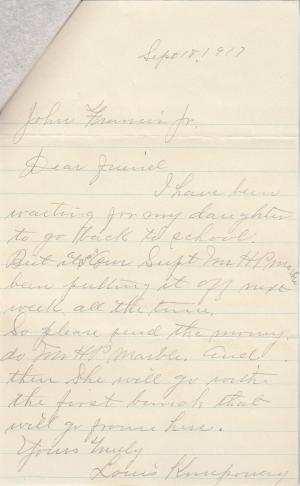 Sept 18, 1917
John Francis Jr.
Dear friend
I have been
waiting for my daughter
to go back to school.
But it's our Supt Mr H P Marble
been putting it off next
week all the time.
So please send the money
do Mr H P. Marble. And
then she will go with
the first bunch that
will go from here.
Yours Truly
Louis